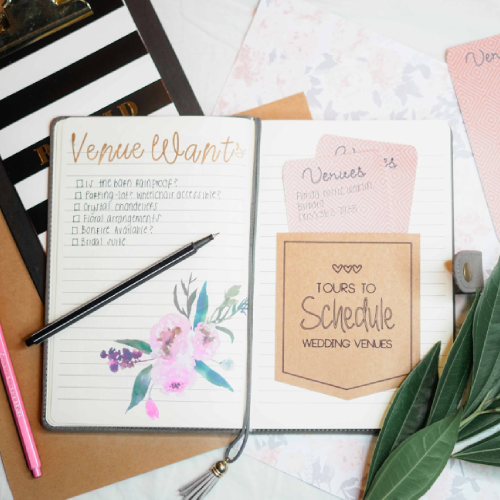 Venue Wants
Is the barn rainproof?
Parking-lot wheelchair accessible?
Crystal chandeliers
Floral arrangements
Bonfire available?
Bridal suite
Venues
TOURS TO
Schedule
WEDDING VENUES
Ven